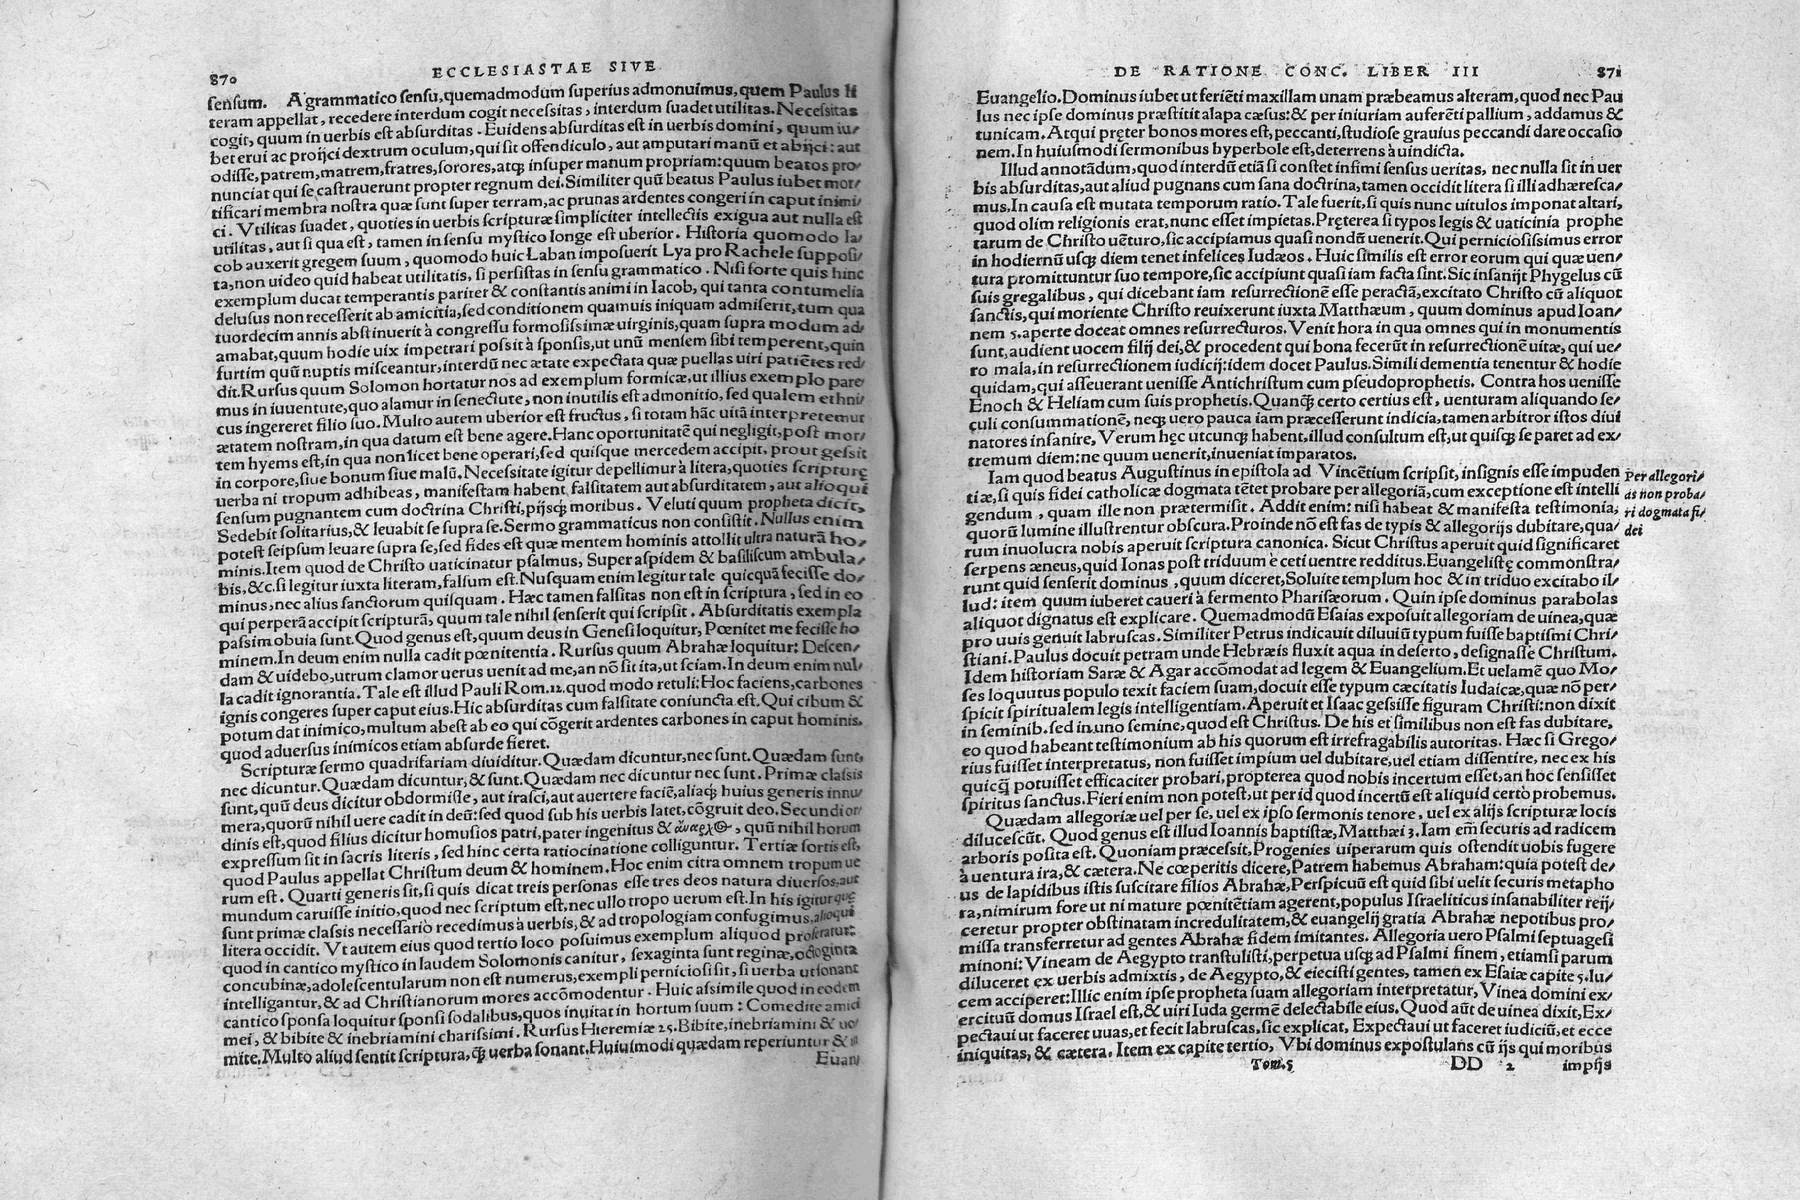 870 ECCLESIASTAE SIVE
sensum. A grammatico sensu, quemadmodum superius admonuimus, quem Paulus li
teram appellat, recedere interdum cogit necessitas, interdum suadet utilitas. Necessitas
cogit, quum in uerbis est absurditas. Euidens absurditas est in uerbis domini, quum iu/
bet erui ac proijci dextrum oculum, qui sit offendiculo, aut amputari manũ et abijci: aut
odisse, patrem, matrem, fratres, sorores, atq; insuper manum propriam: quum beatos pro/
nunciat qui se castrauerunt propter regnum dei. Similiter quũ beatus Paulus iubet mor/
tificari membra nostra quæ sunt super terram, ac prunas ardentes congeri in caput inimi/
ci. Vtilitas suadet, quoties in uerbis scripturæ simpliciter intellectis exigua aut nulla est
utilitas, aut si qua est, tamen in sensu mystico longe est uberior. Historia quomodo Ia/
cob auxerit gregem suum, quomodo huic Laban imposuerit Lya pro Rachele supposi/
ta, non uideo quid habeat utilitatis, si persistas in sensu grammatico. Nisi forte quis hinc
exemplum ducat temperantis pariter & constantis animi in Iacob, qui tanta contumelia
delusus non recesserit ab amicitia, sed conditionem quamuis iniquam admiserit, tum qua
tuordecim annis abstinuerit à congressu formosissimæ uirginis, quam supra modum ad/
amabat, quum hodie uix impetrari possit à sponsis, ut unũ mensem sibi temperent, quin
furtim quũ nuptis misceantur, interdũ nec ætate expectata quæ puellas uiri patiẽtes red/
dit. Rursus quum Solomon hortatur nos ad exemplum formicæ, ut illius exemplo pare
mus in iuuentute, quo alamur in senectute, non inutilis est admonitio, sed qualem ethni/
cus ingereret filio suo. Multo autem uberior est fructus, si totam hãc uitã interpretemur
ætatem nostram, in qua datum est bene agere. Hanc oportunitatẽ qui negligit, post mor/
tem hyems est, in qua non licet bene operari, sed quisque mercedem accipit, prout gessit
in corpore, siue bonum siue malũ. Necessitate igitur depellimur à litera, quoties scripturę
uerba ni tropum adhibeas, manifestam habent falsitatem aut absurditatem, aut alioqui
sensum pugnantem cum doctrina Christi, pijsq; moribus. Veluti quum propheta dicit,
Sedebit solitarius, & leuabit se supra se. Sermo grammaticus non consistit. Nullus enim
potest seipsum leuare supra se, sed fides est quæ mentem hominis attollit ultra naturã ho/
minis. Item quod de Christo uaticinatur psalmus, Super aspidem & basiliscum ambula/
bis, &c. si legitur iuxta literam, falsum est. Nusquam enim legitur tale quicquã fecisse do/
minus, nec alius sanctorum quisquam. Hæc tamen falsitas non est in scriptura, sed in eo
qui perperã accipit scripturã, quum tale nihil senserit qui scripsit. Absurditatis exempla
passim obuia sunt. Quod genus est, quum deus in Genesi loquitur, Pœnitet me fecisse ho
minem. In deum enim nulla cadit pœnitentia. Rursus quum Abrahæ loquitur: Descen/
dam & uidebo, utrum clamor uerus uenit ad me, an nõ sit ita, ut sciam. In deum enim nul/
la cadit ignorantia. Tale est illud Pauli Rom. 12. quod modo retuli: Hoc faciens, carbones
ignis congeres super caput eius. Hic absurditas cum falsitate coniuncta est. Qui cibum &
potum dat inimico, multum abest ab eo qui cõgerit ardentes carbones in caput hominis,
quod aduersus inimicos etiam absurde fieret.
Scripturæ sermo quadrifariam diuiditur. Quædam dicuntur, nec sunt. Quædam sunt,
nec dicuntur. Quædam dicuntur, & sunt. Quædam nec dicuntur nec sunt. Primæ classis
sunt, quũ deus dicitur obdormisse, aut irasci, aut auertere faciẽ, aliaq; huius generis innu/
mera, quorũ nihil uere cadit in deũ: sed quod sub his uerbis latet, cõgruit deo. Secundi or/
dinis est, quod filius dicitur homusios patri, pater ingenitus & ἄναρχος, quũ nihil horum
expressum sit in sacris literis, sed hinc certa ratiocinatione colliguntur. Tertiæ sortis est,
quod Paulus appellat Christum deum & hominem. Hoc enim citra omnem tropum ue
rum est. Quarti generis sit, si quis dicat treis personas esse tres deos natura diuersos, aut
mundum caruisse initio, quod nec scriptum est, nec ullo tropo uerum est. In his igitur quę
sunt primæ classis necessariò recedimus à uerbis, & ad tropologiam confugimus, alioqui
litera occidit. Vt autem eius quod tertio loco posuimus exemplum aliquod proferatur:
quod in cantico mystico in laudem Solomonis canitur, sexaginta sunt reginæ, octoginta
concubinæ, adolescentularum non est numerus, exempli perniciosi sit, si uerba ut sonant
intelligantur, & ad Christianorum mores accõmodentur. Huic assimile quod in eodem
cantico sponsa loquitur sponsi sodalibus, quos inuitat in hortum suum: Comedite amici
mei, & bibite & inebriamini charissimi. Rursus Hieremiæ 25. Bibite, inebriamini & uo/
mite. Multo aliud sentit scriptura, q̃; uerba sonant. Huiusmodi quædam reperiuntur & in
Euan/
DE RATIONE CONC. LIBER III 871
Euangelio. Dominus iubet ut feriẽti maxillam unam præbeamus alteram, quod nec Pau
lus nec ipse dominus præstitit alapa cæsus: & per iniuriam auferẽti pallium, addamus &
tunicam. Atqui pręter bonos mores est, peccanti, studiose grauius peccandi dare occasio
nem. In huiusmodi sermonibus hyperbole est, deterrens à uindicta.
Illud annotãdum, quod interdũ etiã si constet infimi sensus ueritas, nec nulla sit in uer
bis absurditas, aut aliud pugnans cum sana doctrina, tamen occidit litera si illi adhæresca/
mus. In causa est mutata temporum ratio. Tale fuerit, si quis nunc uitulos imponat altari,
quod olim religionis erat, nunc esset impietas. Pręterea si typos legis & uaticinia prophe
tarum de Christo uẽturo, sic accipiamus quasi nondũ uenerit. Qui perniciosissimus error
in hodiernũ usq; diem tenet infelices Iudæos. Huic similis est error eorum qui quæ uen/
tura promittuntur suo tempore, sic accipiunt quasi iam facta sint. Sic insanijt Phygelus cũ
suis gregalibus, qui dicebant iam resurrectionẽ esse peractã, excitato Christo cũ aliquot
sanctis, qui moriente Christo reuixerunt iuxta Matthæum, quum dominus apud Ioan/
nem 5. aperte doceat omnes resurrecturos. Venit hora in qua omnes qui in monumentis
sunt, audient uocem filij dei, & procedent qui bona fecerũt in resurrectionẽ uitæ, qui ue/
ro mala, in resurrectionem iudicij: idem docet Paulus. Simili dementia tenentur & hodie
quidam, qui asseuerant uenisse Antichristum cum pseudoprophetis. Contra hos uenisse
Enoch & Heliam cum suis prophetis. Quanq̃; certo certius est, uenturam aliquando se/
culi consummationẽ, neq; uero pauca iam præcesserunt indicia, tamen arbitror istos diui
natores insanire, Verum hęc utcunq; habent, illud consultum est, ut quisq; se paret ad ex/
tremum diem: ne quum uenerit, inueniat imparatos.
Iam quod beatus Augustinus in epistola ad Vincẽtium scripsit, insignis esse impuden
tiæ, si quis fidei catholicæ dogmata tẽtet probare per allegoriã, cum exceptione est intelli
gendum, quam ille non prætermisit. Addit enim: nisi habeat & manifesta testimonia,
quorũ lumine illustrentur obscura. Proinde nõ est fas de typis & allegorijs dubitare, qua/
rum inuolucra nobis aperuit scriptura canonica. Sicut Christus aperuit quid significaret
serpens æneus, quid Ionas post triduum è ceti uentre redditus. Euangelistę commonstra/
runt quid senserit dominus, quum diceret, Soluite templum hoc & in triduo excitabo il/
lud: item quum iuberet caueri à fermento Pharisæorum. Quin ipse dominus parabolas
aliquot dignatus est explicare. Quemadmodũ Esaias exposuit allegoriam de uinea, quæ
pro uuis genuit labruscas. Similiter Petrus indicauit diluuiũ typum fuisse baptismi Chri/
stiani. Paulus docuit petram unde Hebræis fluxit aqua in deserto, designasse Christum.
Idem historiam Saræ & Agar accõmodat ad legem & Euangelium. Et uelamẽ quo Mo/
ses loquutus populo texit faciem suam, docuit esse typum cæcitatis Iudaicæ, quæ nõ per/
spicit spiritualem legis intelligentiam. Aperuit et Isaac gessisse figuram Christi: non dixit
in seminib. sed in uno semine, quod est Christus. De his et similibus non est fas dubitare,
eo quod habeant testimonium ab his quorum est irrefragabilis autoritas. Hæc si Grego/
rius fuisset interpretatus, non fuisset impium uel dubitare, uel etiam dissentire, nec ex his
quicq̃; potuisset efficaciter probari, propterea quod nobis incertum esset, an hoc sensisset
spiritus sanctus. Fieri enim non potest, ut per id quod incertũ est aliquid certò probemus.
Quædam allegoriæ uel per se, uel ex ipso sermonis tenore, uel ex alijs scripturæ locis
dilucescũt. Quod genus est illud Ioannis baptistæ, Matthæi 3. Iam em̃ securis ad radicem
arboris posita est. Quoniam præcessit, Progenies uiperarum quis ostendit uobis fugere
à uentura ira, & cætera. Ne cœperitis dicere, Patrem habemus Abraham: quia potest de/
us de lapidibus istis suscitare filios Abrahæ, Perspicuũ est quid sibi uelit securis metapho
ra, nimirum fore ut ni mature pœnitẽtiam agerent, populus Israeliticus insanabiliter reij/
ceretur propter obstinatam incredulitatem, & euangelij gratia Abrahæ nepotibus pro/
missa transferretur ad gentes Abrahæ fidem imitantes. Allegoria uero Psalmi septuagesi
minoni: Vineam de Aegypto transtulisti, perpetua usq; ad Psalmi finem, etiamsi parum
diluceret ex uerbis admixtis, de Aegypto, & eiecisti gentes, tamen ex Esaiæ capite 5. lu/
cem acciperet: Illic enim ipse propheta suam allegoriam interpretatur, Vinea domini ex/
ercituũ domus Israel est, & uiri Iuda germẽ delectabile eius. Quod aũt de uinea dixit, Ex/
pectaui ut faceret uuas, et fecit labruscas, sic explicat, Expectaui ut faceret iudiciũ, et ecce
iniquitas, & cætera. Item ex capite tertio, Vbi dominus expostulans cũ ijs qui moribus
Tom. 5 DD 2 impijs
Per allegori/
as non proba/
ri dogmata fi/
dei